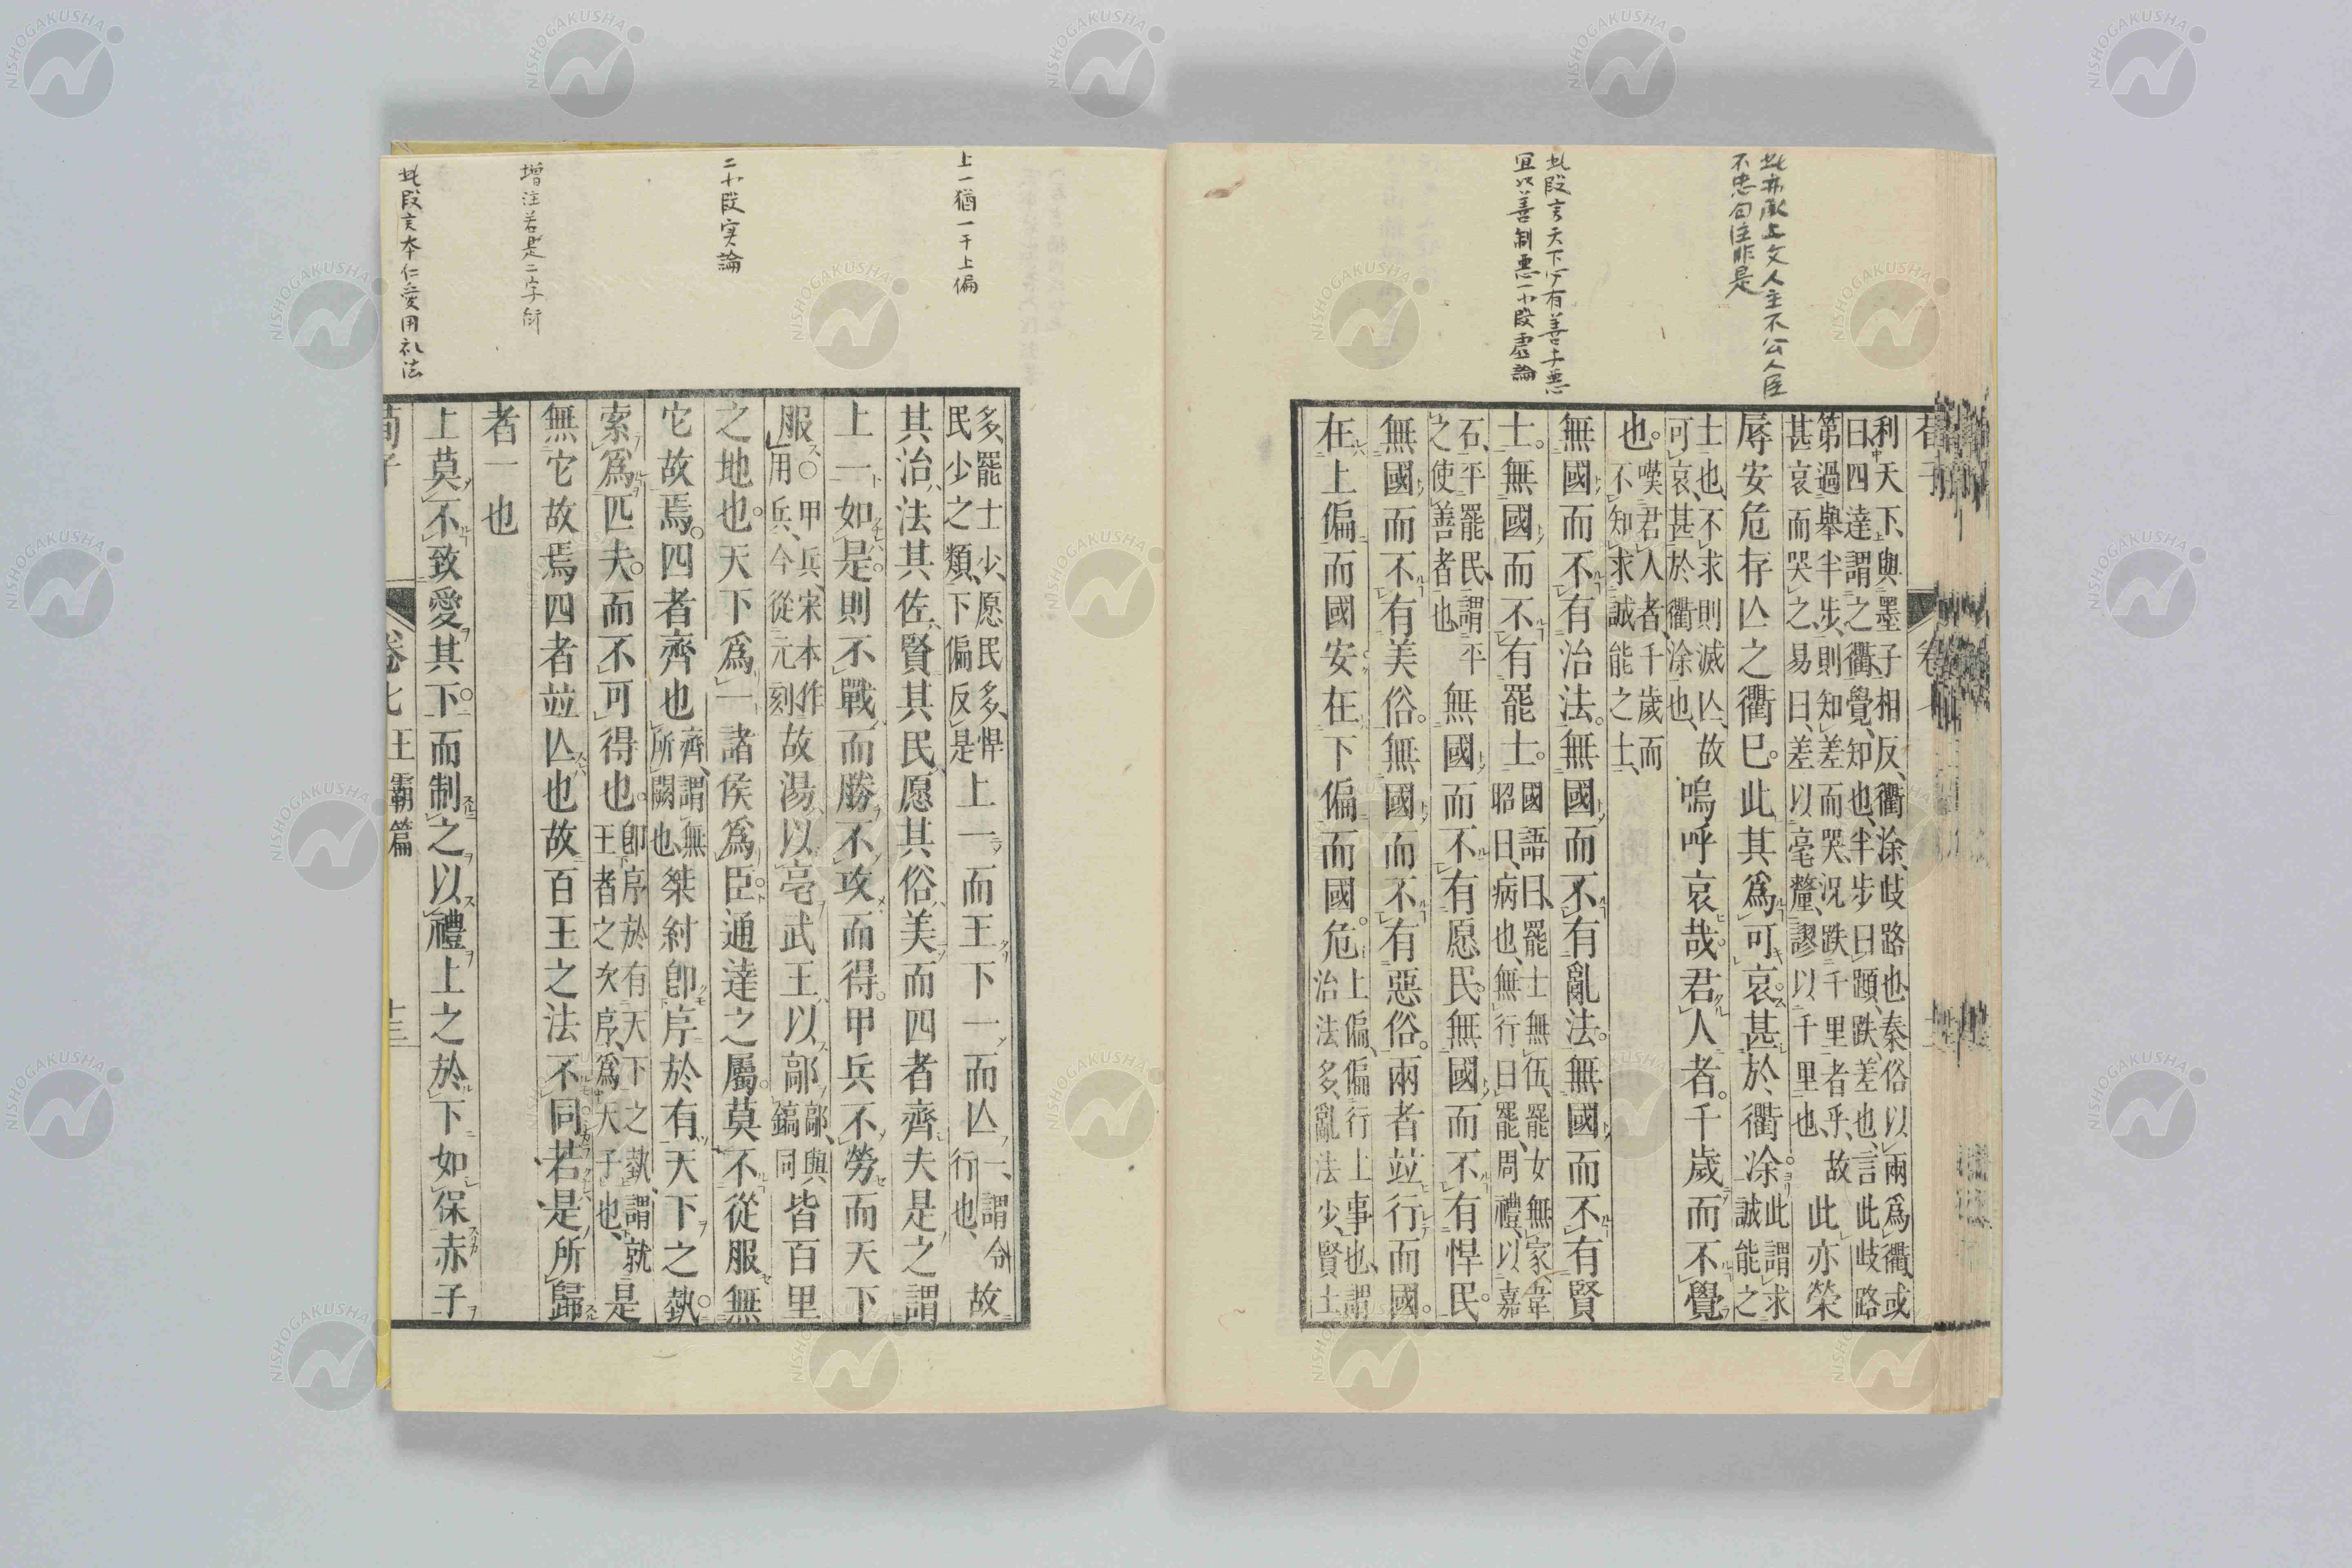 此亦承上文人主不公人臣
不忠句注非是
此段言天下皆有善亦惡
宜以善制悪一小段虚論
利天下、與墨子相反、衢涂、歧路也、秦俗以兩爲衢、或
曰、四達謂之衢、覺、知也、半步曰蹞、跌、差也、言此歧路
第過舉半步、則知差而哭、況跌千里者乎、故
甚哀而哭之、易曰、差以毫釐、謬以千里也、
此亦榮
辱安危存亾之衢已。此其爲可哀。甚於衢涂。
此謂求
誠能之
士也、不求則滅亾、故
可哀、甚於衢涂也、
嗚呼哀哉。君人者。千歲而不覺
也。
嘆君人者、千歲而
不知求誠能之士、
無國而不有治法。無國而不有亂法。無國而不有賢
士。無國而不有罷士。
國語曰、罷士無伍、罷女無家、韋
昭曰、病也、無行曰罷、周禮、以嘉
石、平罷民、謂平
之使善者也
無國而不有愿民。無國而不有悍民。
無國而不有美俗。無國而不有惡俗。兩者竝行而國。
在上偏而國安在下偏而國危。
上偏、偏行上事也、謂
治法多、亂法少、賢士
上一猶一于上偏
二小段実論
增注若是二字衍
此段言本仁愛用礼法
多、罷士少、愿民多、悍
民少之類、下偏反是
上一而王下一而亾
一、謂令
行也、
故
其治法其佐賢其民愿其俗美而四者齊夫是之謂
上一如是。則不戰而勝不攻而得。甲兵不勞而天下
服
○甲兵、宋本作
用兵、今從元刻
故湯以亳武王以鄗
鄗、與
鎬同
皆百里
之地也。天下爲一諸侯爲臣。通達之屬。莫不從服無
它故焉。四者齊也
齊、謂無
所闕也
桀紂卽序於有天下之埶。
索爲匹夫。而不可得也。
卽序於有天下之埶、謂就
王者之次序、爲天子也、
是
無它故焉四者竝亾也故百王之法不同若是所歸
者一也
上莫不致愛其下。而制之以禮上之於下如保赤子
荀子
卷七
王霸篇
十三